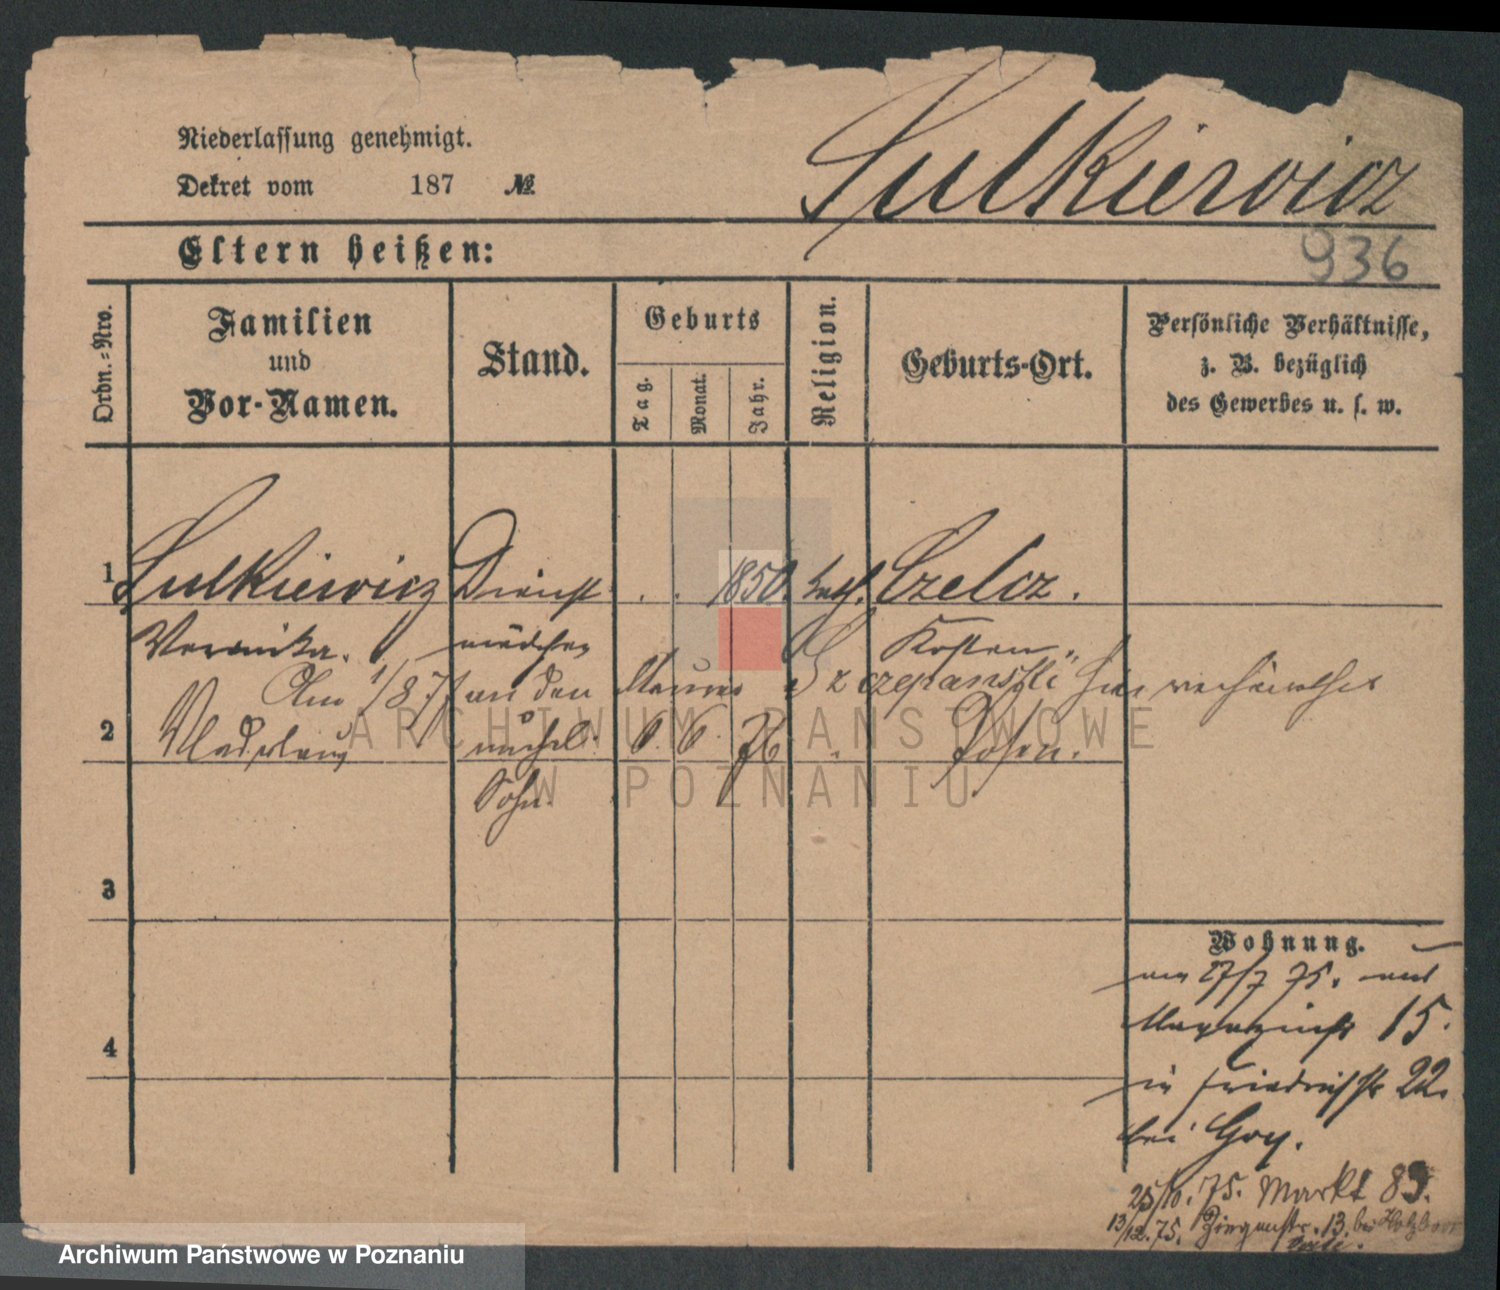 Niederlassung genehmigt.
Dekret vom 187 №
Sulkiewicz
Eltern heißen:
936
Ordn.-Nro.
Familien
und
Vor-Namen.
Stand.
Geburts
Tag.
Monat.
Jahr.
Religion.
Geburts-Ort.
Persönliche Verhältnisse,
z. B. bezüglich
des Gewerbes u. s. w.
1 Sulkiewicz Dienst . . 1850. kath. Czelcz.
Veronika. mädchen Kosten.
Am 1/8 77 an den Maurer Szczepanski hier verheirathet
2 Vladislaus unehel. 6. 6. 76 Posen.
Sohn.
ARCHIWUM PAŃSTWOWE
W POZNANIU
3
4
Wohnung.
am 27/7 75. aus
Magazinstr 15.
in Friedrichstr 22.
bei
25/10. 75. Markt 83.
13/12. 75. Ziegenstr. 13. bei
Archiwum Państwowe w Poznaniu